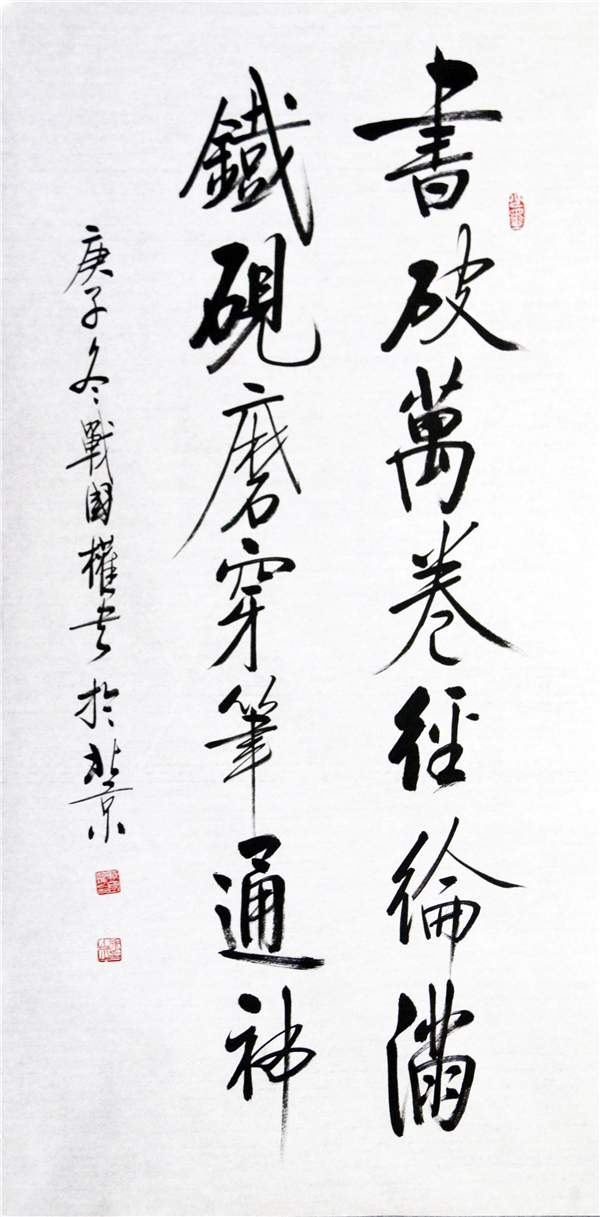 書破萬卷經綸滿
鐵硯磨穿筆通神
庚子冬戰國權書於北京